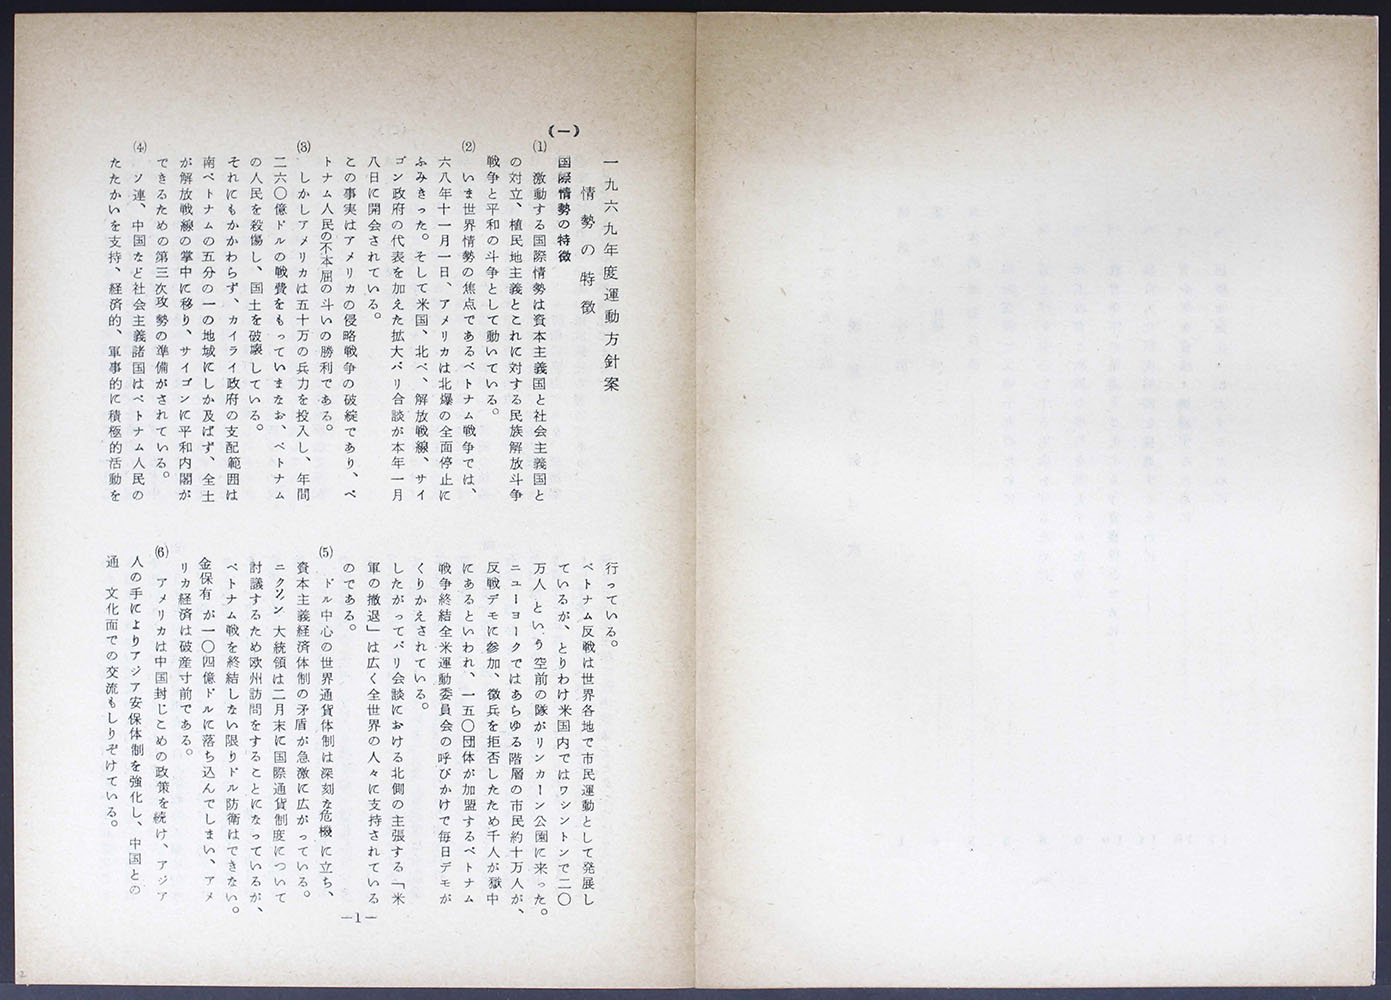 一九六九年度運動方針案
情勢の特徴
(一)
国際情勢の特徴
(1) 激動する国際情勢は資本主義国と社会主義国と
の対立、植民地主義とこれに対する民族解放斗争
戦争と平和の斗争として動いている。
(2) いま世界情勢の焦点であるベトナム戦争では、
六八年十一月一日、アメリカは北爆の全面停止に
ふみきった。そして米国、北ベ、解放戦線、サイ
ゴン政府の代表を加えた拡大パリ会談が本年一月
八日に開会されている。
この事実はアメリカの侵略戦争の破綻であり、ベ
トナム人民の不本屈の斗いの勝利である。
(3) しかしアメリカは五十万の兵力を投入し、年間
二六〇億ドルの戦費をもっていまなお、ベトナム
の人民を殺傷し、国土を破壊している。
それにもかかわらず、カイライ政府の支配範囲は
南ベトナムの五分の一の地域にしか及ばず、全土
が解放戦線の掌中に移り、サイゴンに平和内閣が
できるための第三次攻勢の準備がされている。
(4) ソ連、中国など社会主義諸国はベトナム人民の
たたかいを支持、経済的、軍事的に積極的活動を
行っている。
ベトナム反戦は世界各地で市民運動として発展し
ているが、とりわけ米国内ではワシントンで二〇
万人 という空前の隊がリンカーン公園に来った。
ニューヨークではあらゆる階層の市民約十万人が、
反戦デモに参加、徴兵を拒否したため千人が獄中
にあるといわれ、一五〇団体が加盟するベトナム
戦争終結全米運動委員会の呼びかけで毎日デモが
くりかえされている。
したがってパリ会談における北側の主張する「米
軍の撤退」は広く全世界の人々に支持されている
のである。
(5) ドル中心の世界通貨体制は深刻な危機に立ち、
資本主義経済体制の矛盾が急激に広がっている。
ニクソン 大統領は二月末に国際通貨制度について
討議するため欧州訪問をすることになっているが、
ベトナム戦を終結しない限りドル防衛はできない。
金保有 が一〇四億ドルに落ち込んでしまい、アメ
リカ経済は破産寸前である。
(6) アメリカは中国封じこめの政策を続け、アジア
人の手によりアジア安保体制を強化し、中国との
通 文化面での交流もしりぞけている。
—1—